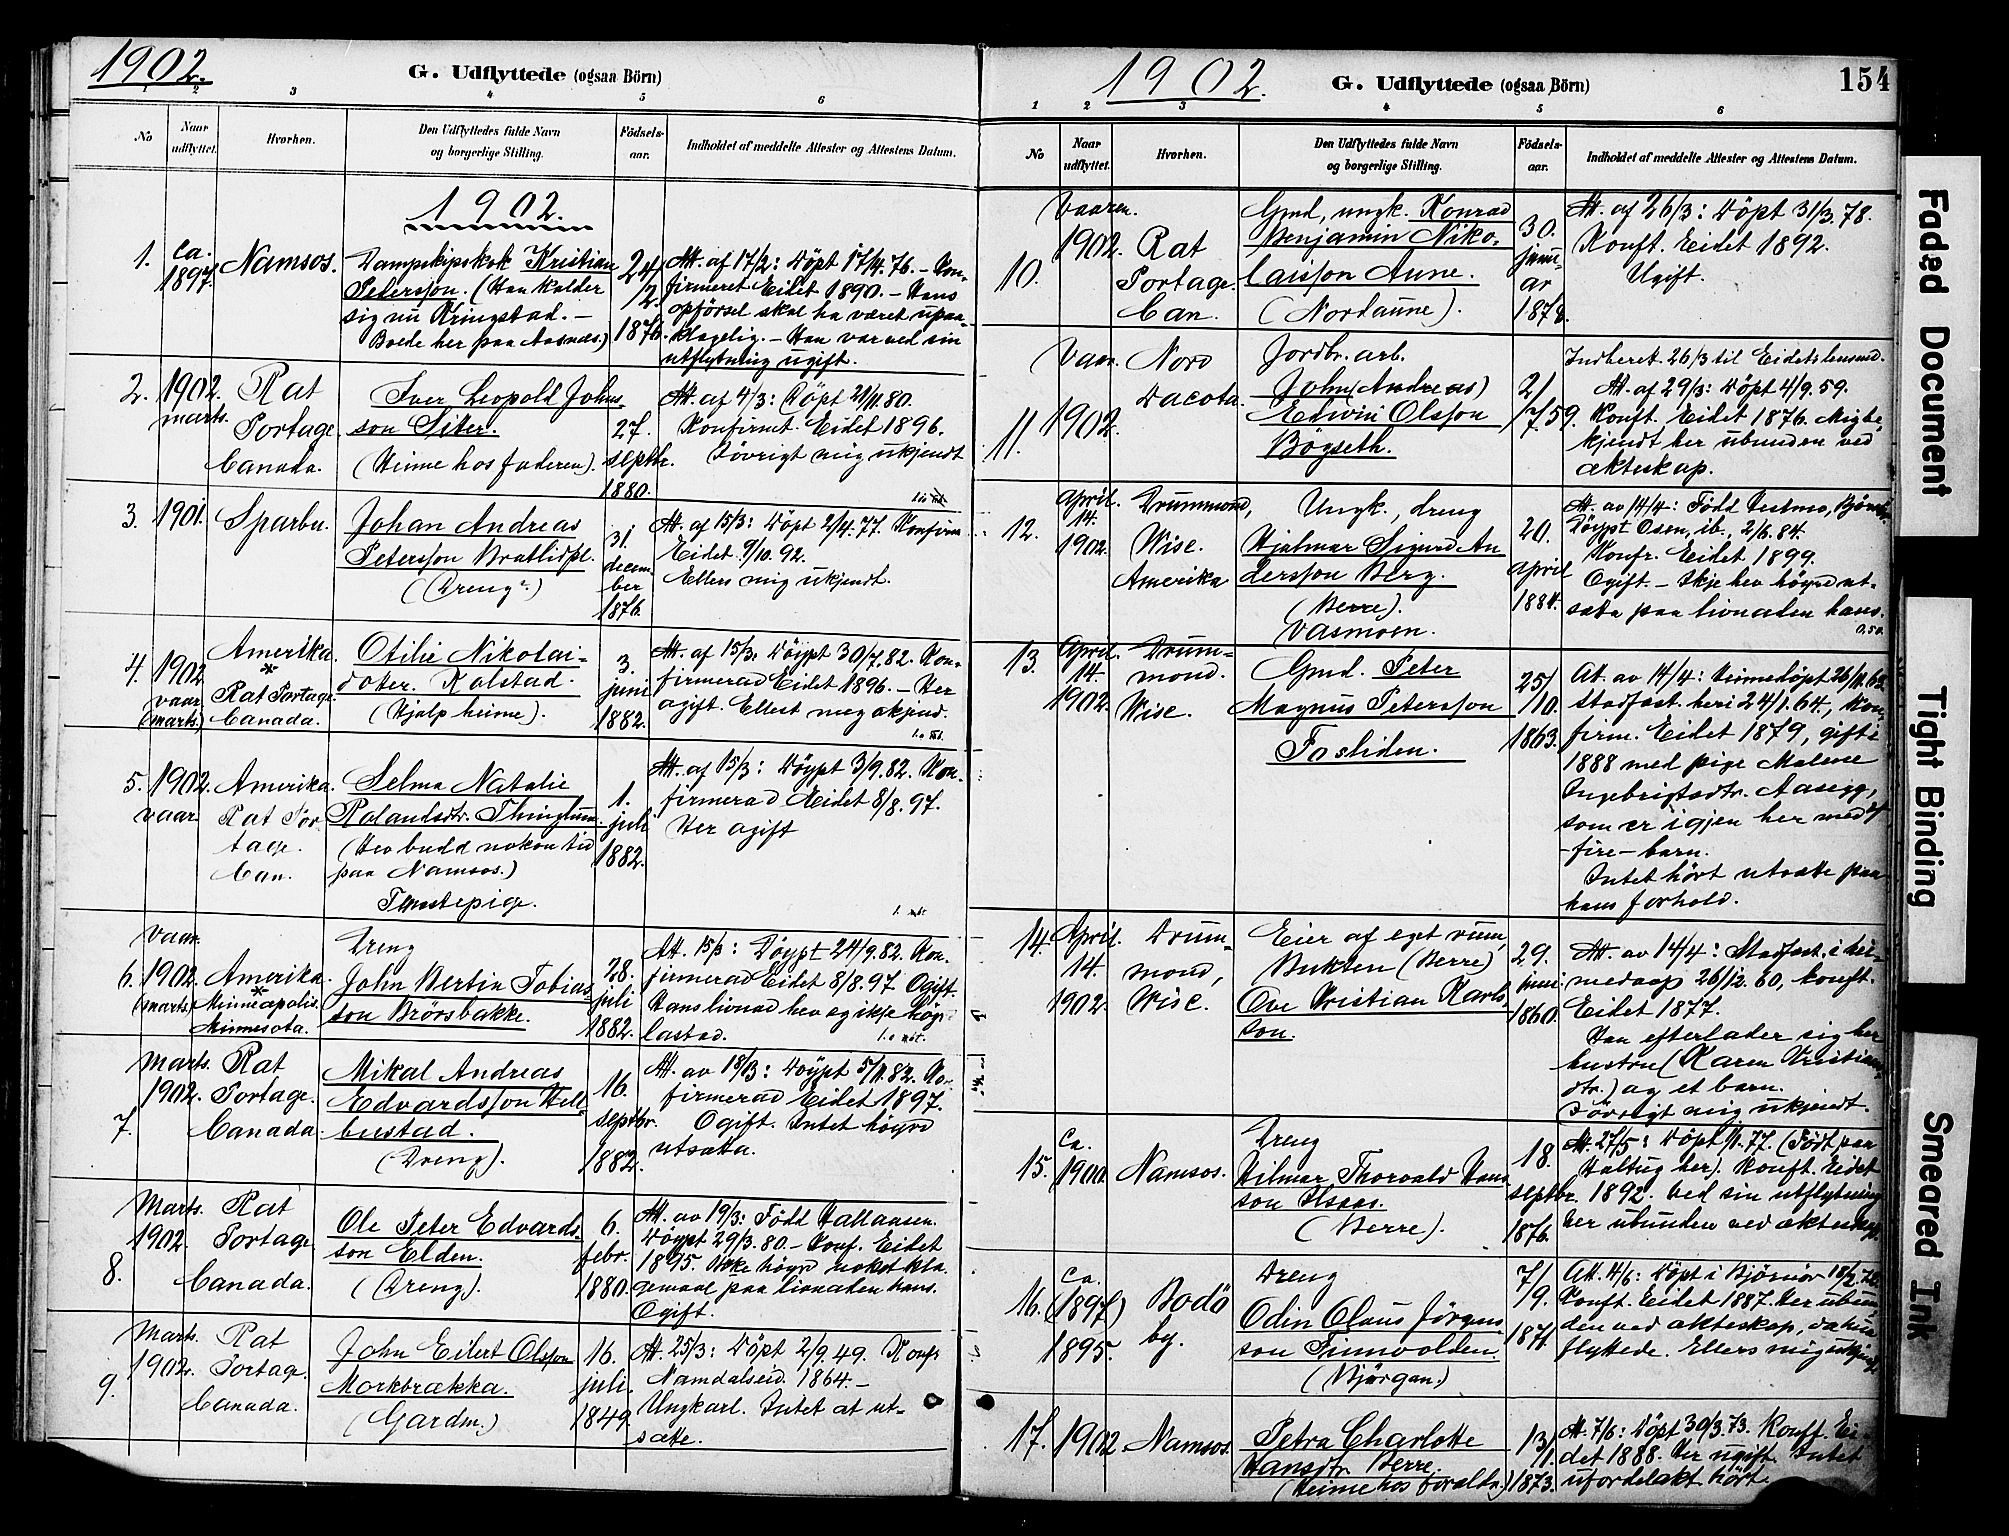 1902.
G. Udflyttede (ogsaa Börn)
1 2 3 4 5 6
No
Naar udflyttet.
Hvorhen.
Den Udflyttedes fulde Navn
og borgerlige Stilling.
Födsels-
aar.
Indholdet af meddelte Attester og Attestens Datum.
1902.
1.
Ca.
1897.
Namsos.
Dampskipskok Kristian
Petersson. (Han kalder
sig nu Kringstad. –
Boede her paa Aasnæs.)
24/
/2
1876.
Att. af 17/2: Döpt 17/4.76. – Kon-
firmeret Eidet 1890. – Hans
opförsel skal ha været upaa-
klagelig. – Han var ved sin
utflytning ugift.
2.
1902.
marts.
Rat
Portage
Canada.
Iver Leopold Johns
son Siter.
(Heime hos faderen).
27.
septbr.
1880.
Att. af 4/3: Döpt 21/11.80.
Konfirmt. Eidet 1896.
Iövrigt mig ukjendt
3.
1901.
Sparbu.
Johan Andreas
Petersson Bratlidpl.
(Dreng)
31.
decem
ber
1876.
Att. af 15/3: Döpt 2/4.77. Konfirm
Eidet 9/10.92.
Ellers mig ukjendt.
4.
1902
vaar
(marts.)
Amerika.
*
Rat Portage
Canada.
Otilie Nikolai-
doter. Kolstad.
(Hjalp heime).
3.
juni
1882.
Att. af 15/3: Döypt 30/7.82. Kon-
firmerad Eidet 1896. – Her
ogift. Ellest meg okjend.
5.
1902.
vaar
Amerika.
Rat Por
tage.
Can.
Selma Natalie
Rolandsdtr. Thinglum.
(Hev budd nokon tid
paa Namsos.)
Tenestepige.
1.
juli
1882.
Att. af 15/3: Döypt 3/9.82. Kon-
firmerad Eidet 8/8.97.
Her ogift
6.
Vaar.
1902.
(marts)
Amerika.
*
Minneapolis.
Minnesota.
Dreng
John Bertin Tobias
son Brörsbakke.
28.
juli
1882.
Att. 15/3: Döypt 24/9.82. Kon-
firmerad Eidet 8/8.97. Ogift.
Hans livnad hev eg ikje höyrd
lastad.
7.
Marts.
1902.
Rat
Portage.
Canada.
Mikal Andreas
Edvardsson Hell
bustad.
(Dreng).
16.
septbr.
1882.
Att. av 18/3: Döypt 5/11.82. Kon
firmerad Eidet 1897.
Ogift. Intet höyrd
utsatta.
8.
Marts.
1902.
Rat
Portage.
Canada.
Ole Peter Edvards-
son Elden.
(Dreng).
6.
febr.
1880.
Att. av 19/3: Född Hallaasen.
Döypt 29/3.80. – Konf. Eidet
1895. Ikke höyrd nokot kla-
gemaal paa livnaden hans.
Ogift.
9.
Marts.
1902.
Rat
Portage.
Canada.
John Eilert Olsson
Morkbrækka.
(Gardm.)
16.
juli.
1849.
Att. 25/3: Döpt 2/9.49. Konf.
Namdalseid 1864. –
Ungkarl. Intet at ut-
sætte.
1902.
G. Udflyttede (ogsaa Börn)
154
1 2 3 4 5 6
No
Naar
udflyttet.
Hvorhen.
Den Udflyttedes fulde Navn
og borgerlige Stilling.
Födsels-
aar.
Indholdet af meddelte Attester og Attestens Datum.
10.
Vaaren.
1902.
Rat
Portage.
Can.
Gmd, ungk. Konrad
Benjamin Niko-
laisson Aune.
(Nordaune).
30.
janu-
ar
1878.
Att. af 26/3: Döpt 31/3.78.
Konft. Eidet 1892.
Ugift.
11.
Vaar.
1902.
Nord
Dacota.
Jordbr. arb.
John (Andreas)
Edwin Olsson
Bögseth.
2/
/7.59.
Indberet. 26/3 til Eidets lensmd.
Att. af 29/3: Döpt 4/9.59.
Konft. Eidet 1876. Mig be-
kjendt her ubunden ved
ækteskap.
12.
April.
14.
1902.
Drummond,
Wisc.
Amerika
Ungk., dreng
Hjalmar Sigurd An
dersson Berg.
(Berre).
Vasmoen.
20.
april
1884.
Att. av 14/4: Född
Döypt Osen, ib., 2/6.84.
Konfr. Eidet 1899.
Ogift. – Ikje hev höyrd ut-
satta paa livnaden hans.
0,50.
13.
April.
14.
1902.
Drum-
mond.
Wisc.
Gmd. Peter
Magnus Petersson
Fosliden.
25/
/10.
1863.
At. av 14/4: Heimedöpt 26/11.63.
stadfast. heri 24/1.64, kon-
firm. Eidet 1879, gift i
1888 med pige Malene
Ingebrigtsdtr. Aasegg,
som er igjen her med
– fire – barn.
Intet hört utsatte paa
hans forhold.
14.
April.
14.
1902.
Drum-
mond,
Wisc.
Eier af eget rum,
Bukten (Berre)
Ove Kristian Karls-
son.
29.
juni
1860.
Att. av 14/4: Stadfæst. i hei-
medaap 26/12.60, konft.
Eidet 1877.
Han efterlader sig her
hustru (Karen Kristians-
dtr.) og et barn.
Iövrigt mig ukjendt.
15.
Ca.
1900.
Namsos.
Dreng
Hilmar Thorvald Hans
son Usaas.
(Berre).
18.
septbr.
1876.
Att. 27/5: Döpt 77. (Födt paa
Haltug her). Konft. Eidet
1892. Ved sin utflytning
her ubunden ved ækteskap.
16.
Ca.
(1897)
1895.
Bodö
by.
Dreng
Odin Olaus Jörgens
son Finnvolden.
(Bjørgan.)
7/
/9.
1871.
Att. 4/6: Döpt i Bjørnör
Konft. Eidet 1887. Her ubun-
den ved ækteskap, da han
flyttede. Ellers mig ukjendt
17.
1902
Namsos.
Petra Charlotte
Hansdtr. Berre.
(Heime hos foraldr.)
13/
/1.
1873.
Att. 7/6: Döpt 30/3.73. Konft. Ei-
det 1888. Her ugift. Intet
ufordelakt. hört.
Faded Document
Tight Binding
Smeared Ink